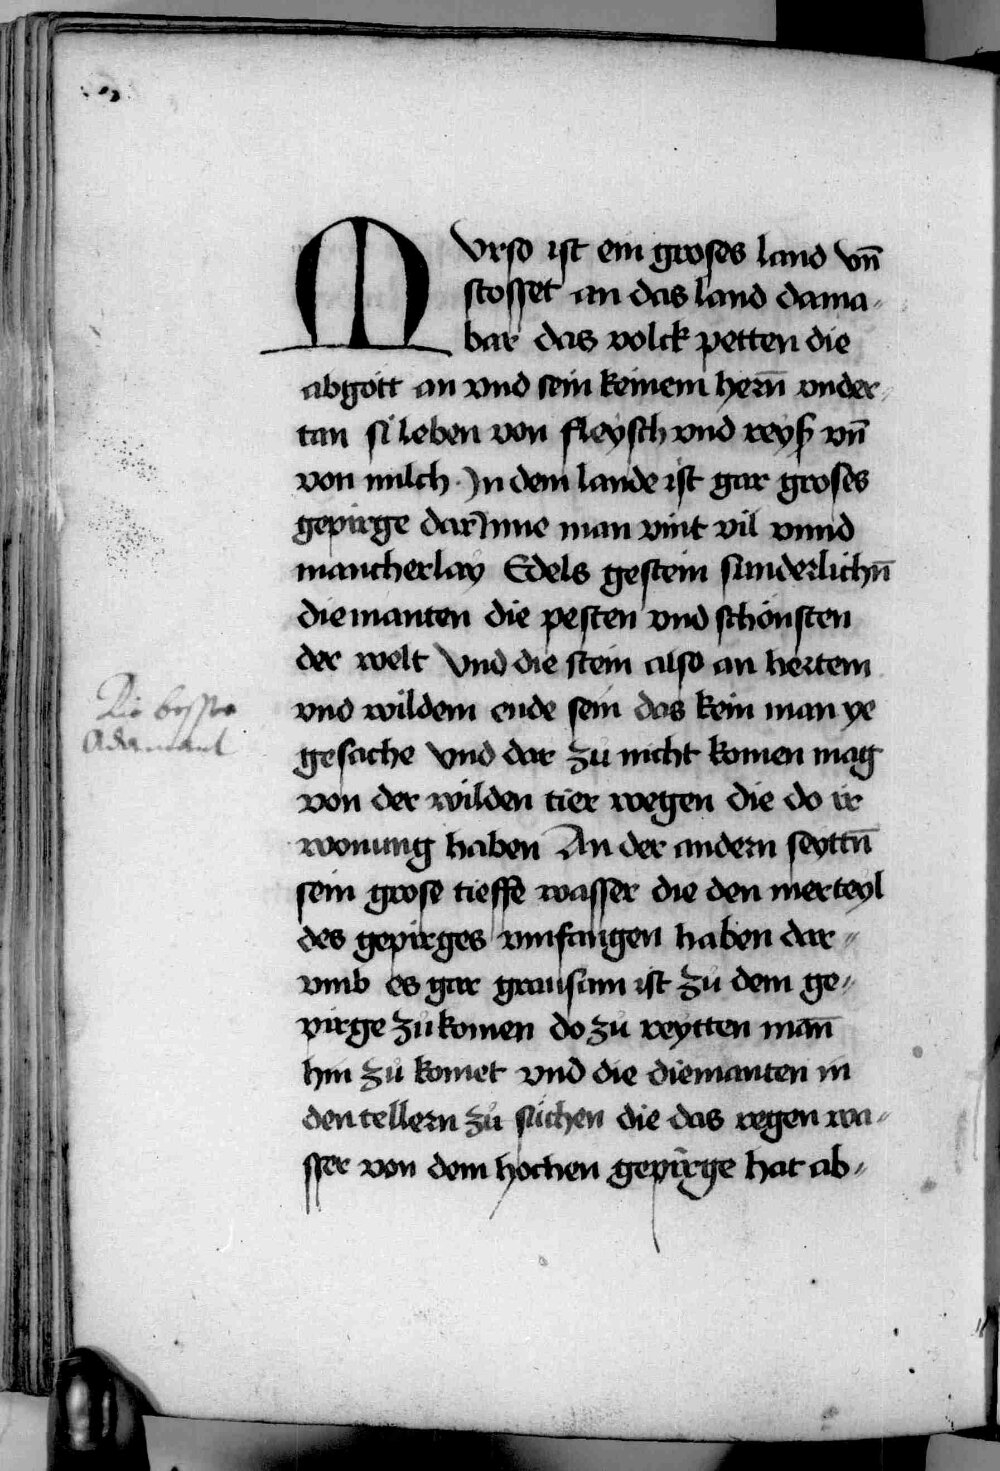 MVrso ist ein groses land vn̄
stosset an das land dama-
bar das volck petten die
abgott an vnd sein keinem hern̄ vnder-
tan si leben von fleysch vnd reyß vn̄
von milch · Jn dem lande ist gar groses
gepirge darJnne man vint vil vnnd
mancherlay Edels gestein sunderlichn̄
diemanten die pesten vnd schönsten
der welt Vnd die stein also an hertem
vnd wildem ende sein das kein man ye
gesache Vnd dar zů nicht komen mag
von der wilden tier wegen die do ir
wonung haben An der andern seyttn̄
sein grose tieffe wasser die den merteyl
des gepirges vmfangen haben dar-
vmb es gar grausam ist zů dem ge-
pirge zů komen do zů reytten man̄
hin zů komet vnd die diemanten in
den tellern zů suchen die das regen wa-
sser von dem hochen gepirge hat ab-
Die beste
Adamant